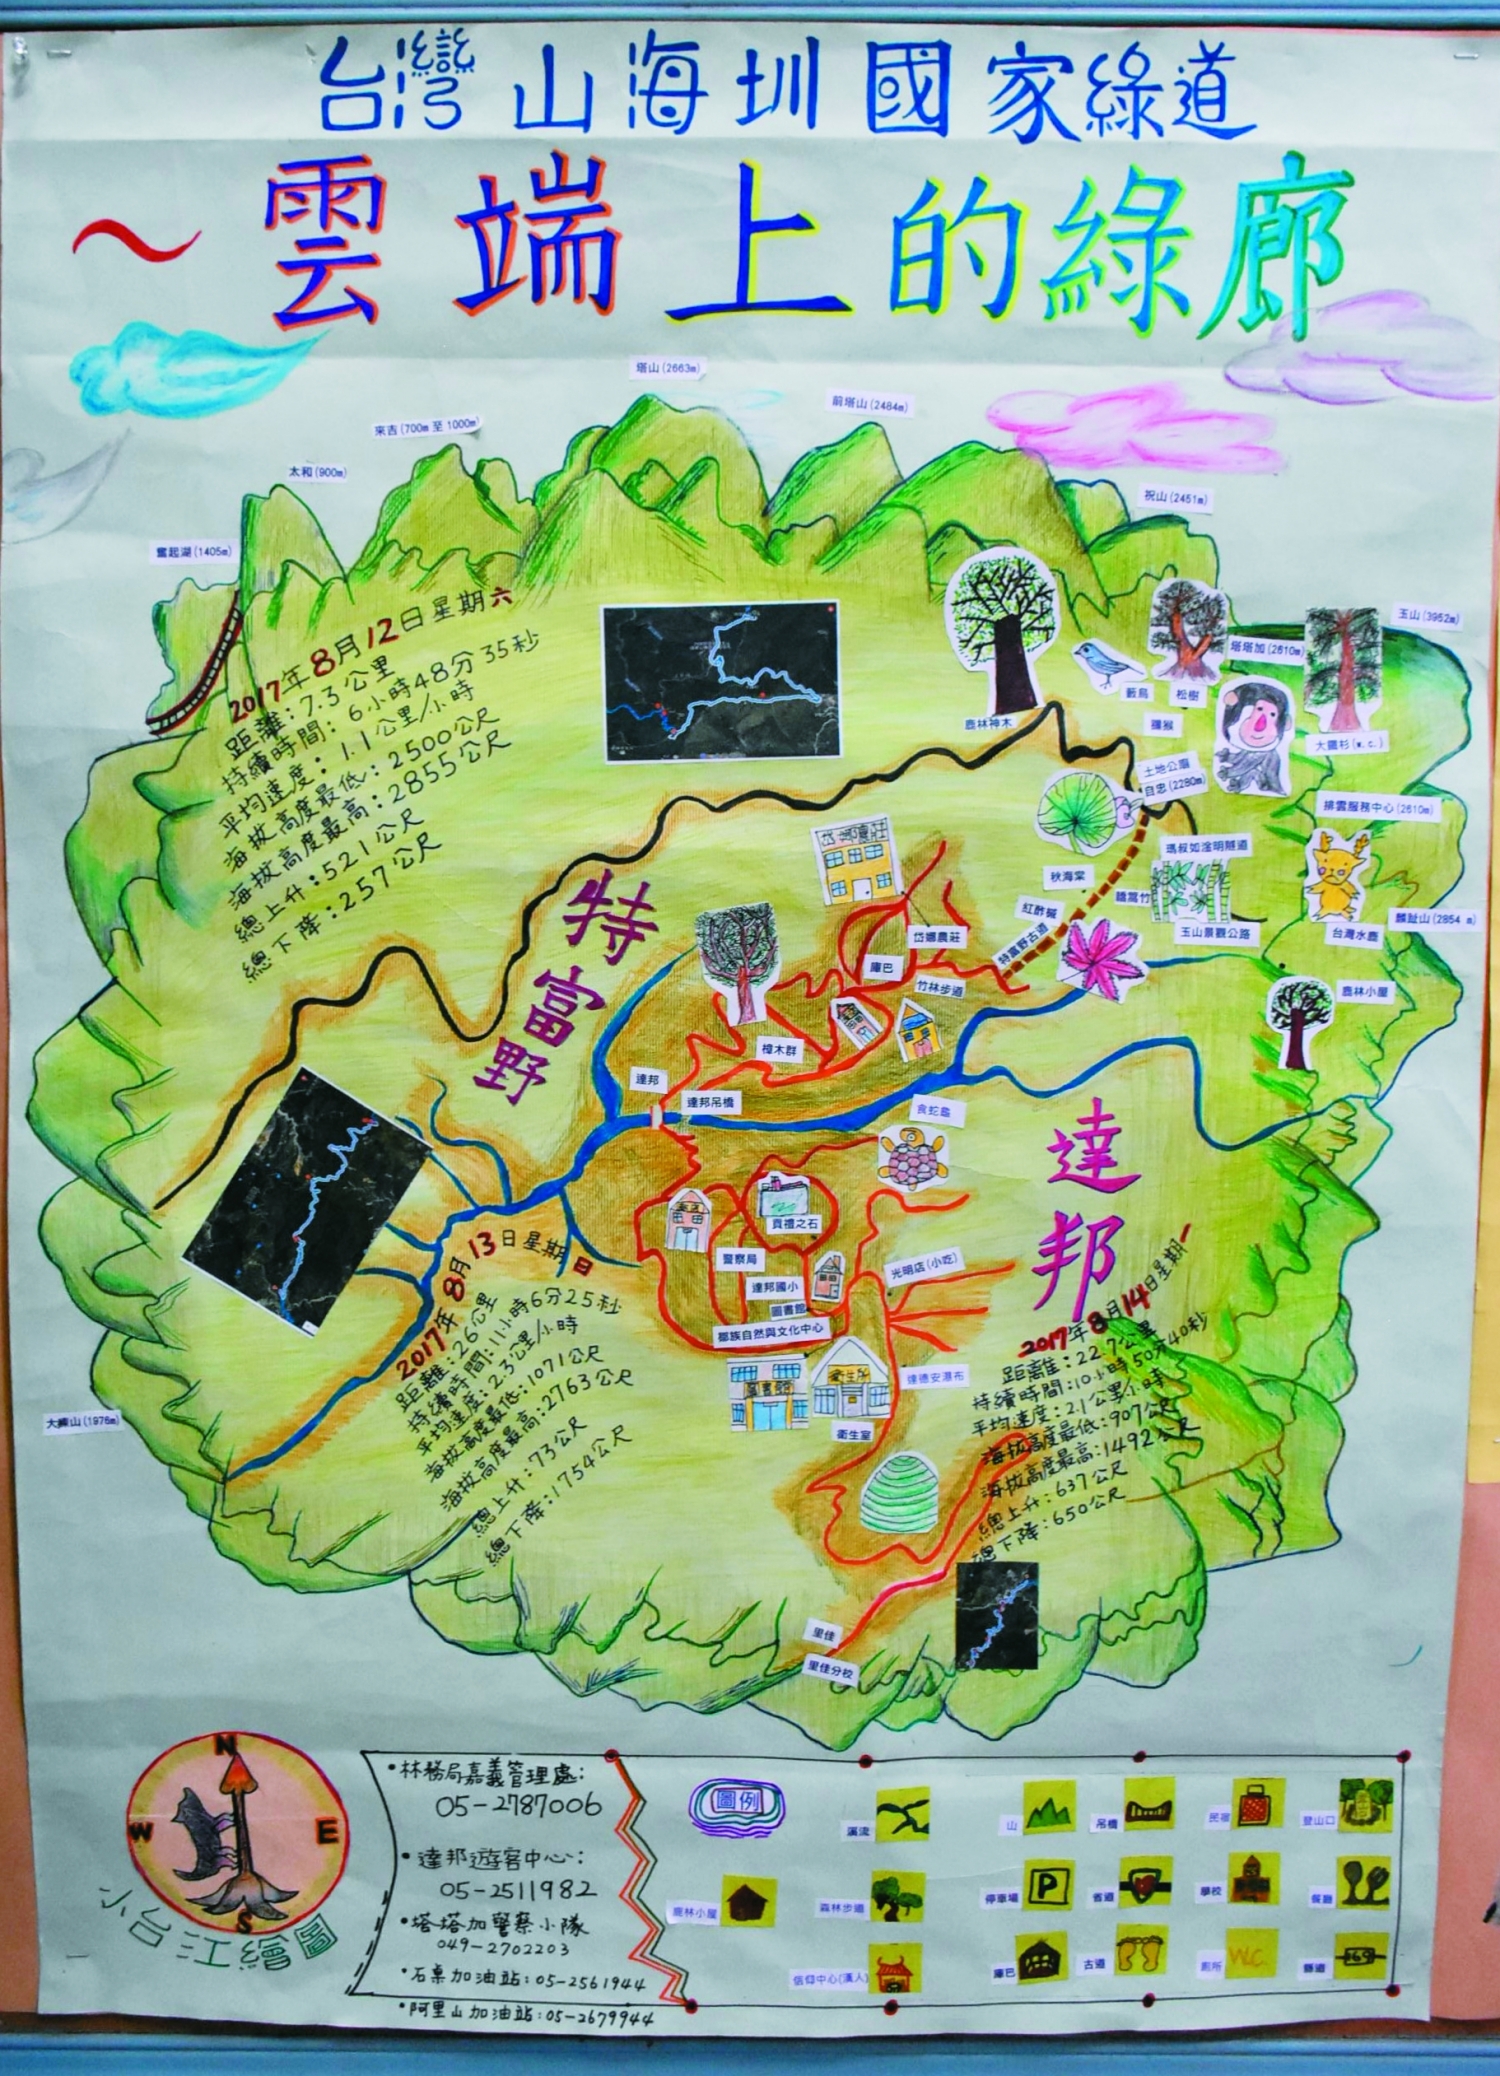 台灣山海圳國家綠道
~雲端上的綠廊
塔山(2663m)
前塔山(2484m)
來吉(700m 至 1000m)
太和(900m)
祝山(2451m)
奮起湖(1405m)
玉山(3952m)
塔塔加(2610m)
2017年8月12日星期六
距離:7.3公里
持續時間:6小時48分35秒
平均速度:1.1公里/小時
海拔高度最低:2500公尺
海拔高度最高:2855公尺
總上升:521公尺
總下降:257公尺
鹿林神木
藪鳥
松樹
獼猴
大鐵杉(w.c.)
土地公廟
自忠(2280m)
排雲服務中心(2610m)
瑪叔如淦明隧道
秋海棠
玉山景觀公路
台灣水鹿
麟趾山(2854 m)
鹿林小屋
紅酢醬
特富野古道
岱娜農莊
庫巴
竹林步道
樟木群
特富野
達邦
達邦吊橋
食蛇龜
達邦
頁禮之石
警察局
達邦國小
圖書館
鄒族自然與文化中心
光明店(小吃)
圖書館
衛生所
衛生室
達德安瀑布
大練山(1976m)
2017年8月13日星期日
距離:26公里
持續時間:11小時6分25秒
平均速度:2.3公里/小時
海拔高度最低:1071公尺
海拔高度最高:2763公尺
總上升:73公尺
總下降:1754公尺
2017年8月14日星期一
距離:22.7公里
持續時間:10小時50分40秒
平均速度:2.1公里/小時
海拔高度最低:907公尺
海拔高度最高:1492公尺
總上升:637公尺
總下降:650公尺
里佳
里佳分校
N
W
E
S
小台江繪圖
•林務局嘉義管理處:
05-2787006
•達邦遊客中心:
05-2511982
•塔塔加警察小隊
049-2702203
•石桌加油站:05-2561944
•阿里山加油站:05-2679944
圖例
溪流
山
吊橋
民宿
登山口
鹿林小屋
森林步道
停車場
P
省道
學校
餐廳
信仰中心(漢人)
庫巴
古道
廁所
W.C
縣道
169